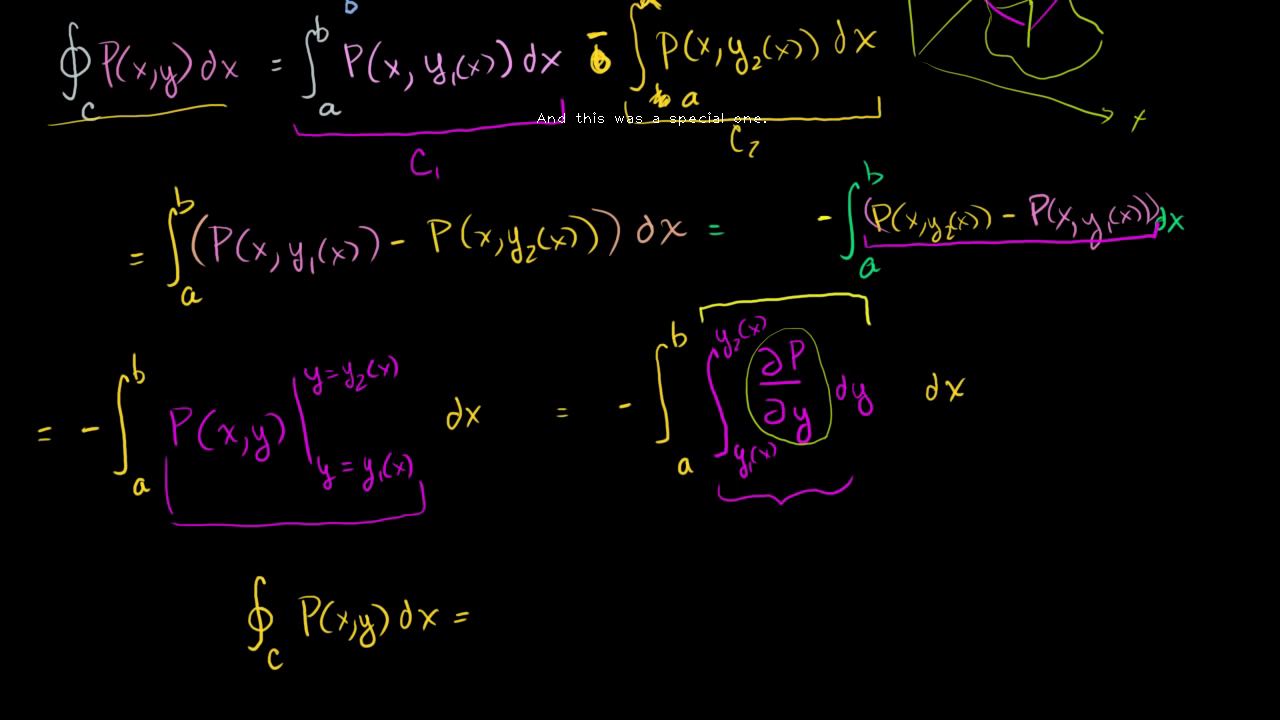 ∮_C P(x,y) dx = ∫_a^b P(x, y₁(x)) dx - ∫_a P(x, y₂(x)) dx
And this was a special one.
C₁ C₂ x
= ∫_a^b (P(x, y₁(x)) - P(x, y₂(x))) dx = - ∫_a^b (P(x, y₂(x)) - P(x, y₁(x))) dx
= - ∫_a^b P(x,y) |_{y = y₁(x)}^{y = y₂(x)} dx = - ∫_a^b ∫_{y₁(x)}^{y₂(x)} ∂P/∂y dy dx
∮_C P(x,y) dx =